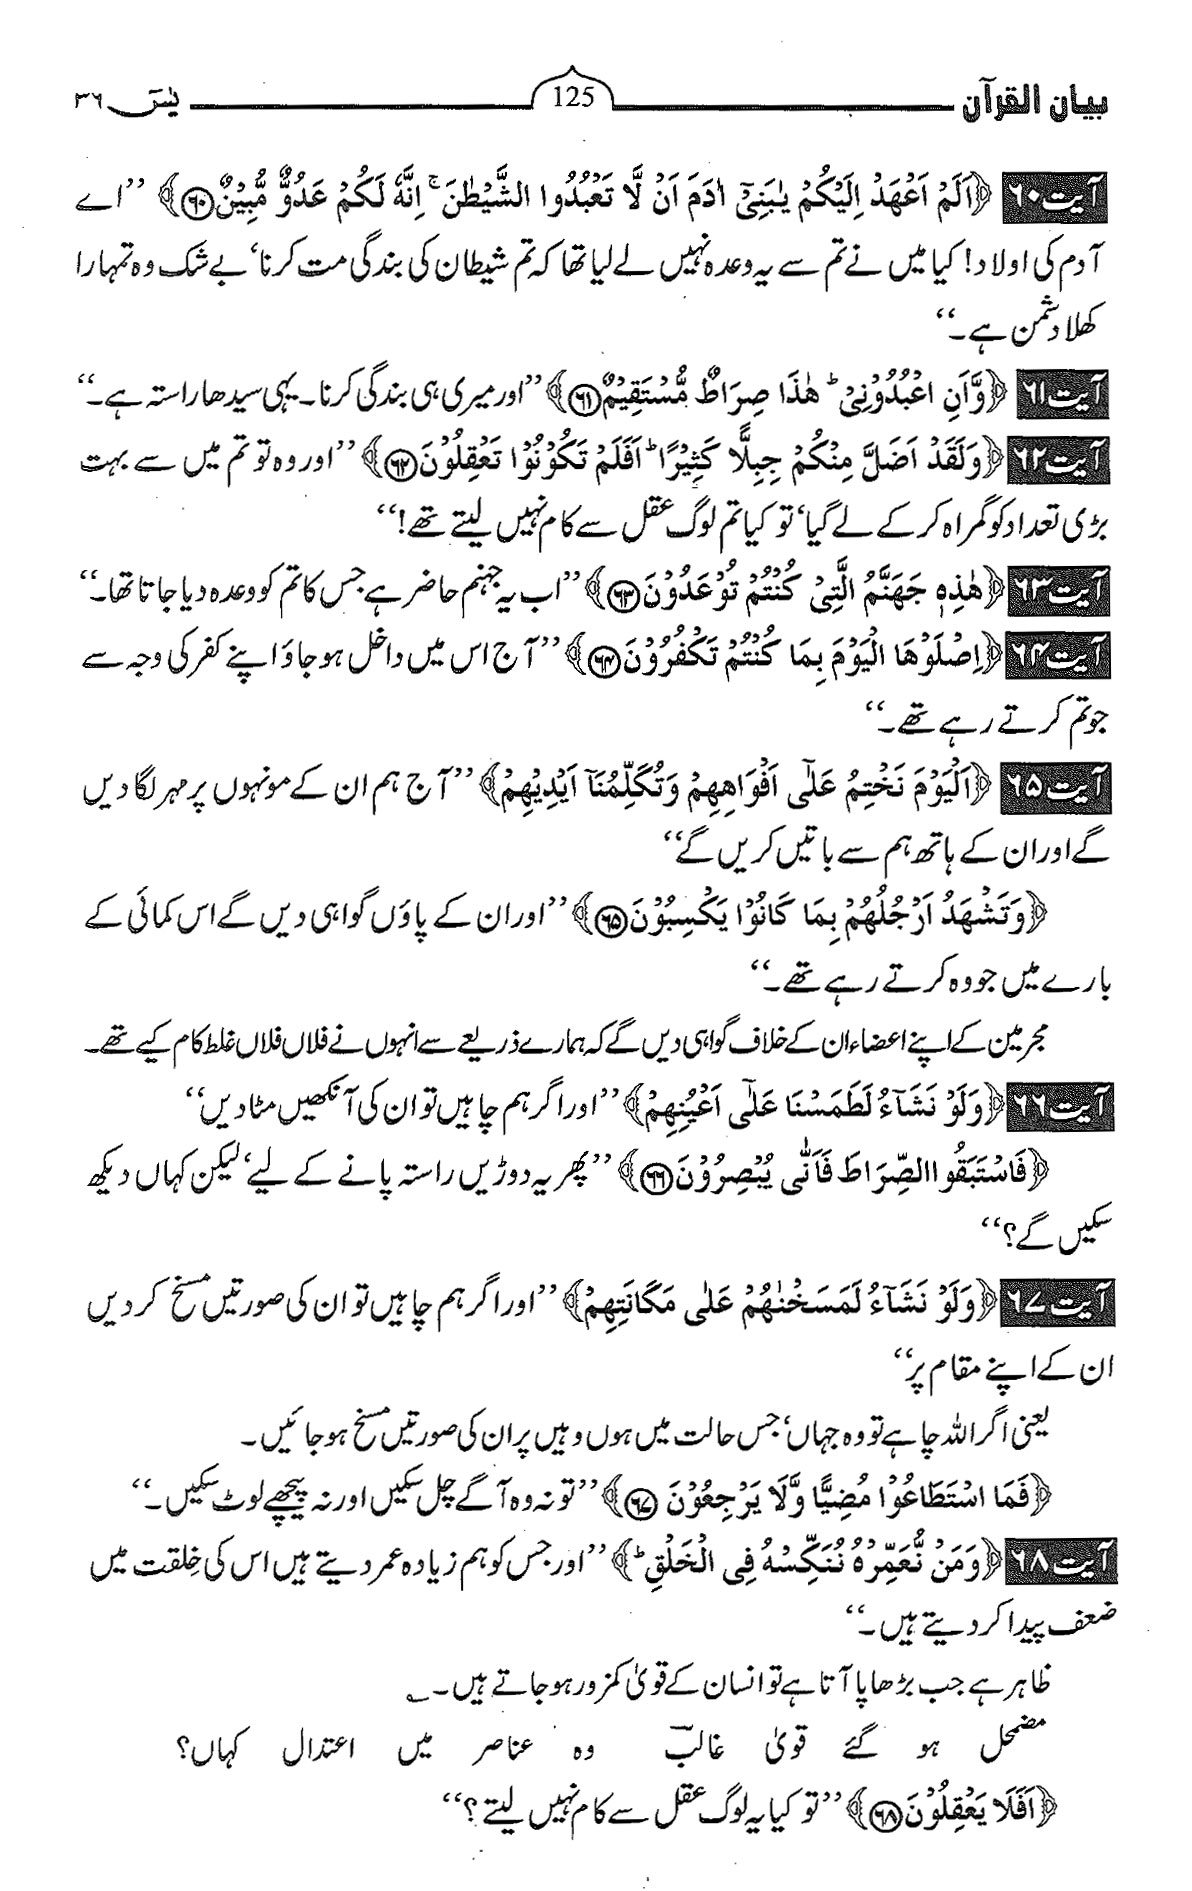 بیان القرآن 125 یٰسٓ ۳۶
آیت ۶۰ ﴿اَلَمْ اَعْهَدْ اِلَيْكُمْ يٰبَنِيْٓ اٰدَمَ اَنْ لَّا تَعْبُدُوا الشَّيْطٰنَ ۚ اِنَّهٗ لَكُمْ عَدُوٌّ مُّبِيْنٌ ۝۶۰﴾ ’’اے
آدم کی اولاد! کیا میں نے تم سے یہ وعدہ نہیں لے لیا تھا کہ تم شیطان کی بندگی مت کرنا‘ بے شک وہ تمہارا
کھلا دشمن ہے۔‘‘
آیت ۶۱ ﴿وَّاَنِ اعْبُدُوْنِيْ ؕ هٰذَا صِرَاطٌ مُّسْتَقِيْمٌ ۝۶۱﴾ ’’اور میری ہی بندگی کرنا۔ یہی سیدھا راستہ ہے۔‘‘
آیت ۶۲ ﴿وَلَقَدْ اَضَلَّ مِنْكُمْ جِبِلًّا كَثِيْرًا ؕ اَفَلَمْ تَكُوْنُوْا تَعْقِلُوْنَ ۝۶۲﴾ ’’اور وہ تو تم میں سے بہت
بڑی تعداد کو گمراہ کر کے لے گیا‘ تو کیا تم لوگ عقل سے کام نہیں لیتے تھے!‘‘
آیت ۶۳ ﴿هٰذِهٖ جَهَنَّمُ الَّتِيْ كُنْتُمْ تُوْعَدُوْنَ ۝۶۳﴾ ’’اب یہ جہنم حاضر ہے جس کا تم کو وعدہ دیا جاتا تھا۔‘‘
آیت ۶۴ ﴿اِصْلَوْهَا الْيَوْمَ بِمَا كُنْتُمْ تَكْفُرُوْنَ ۝۶۴﴾ ’’آج اس میں داخل ہو جاؤ اپنے کفر کی وجہ سے
جو تم کرتے رہے تھے۔‘‘
آیت ۶۵ ﴿اَلْيَوْمَ نَخْتِمُ عَلٰٓى اَفْوَاهِهِمْ وَتُكَلِّمُنَآ اَيْدِيْهِمْ﴾ ’’آج ہم ان کے مونہوں پر مہر لگا دیں
گے اور ان کے ہاتھ ہم سے باتیں کریں گے‘‘
﴿وَتَشْهَدُ اَرْجُلُهُمْ بِمَا كَانُوْا يَكْسِبُوْنَ ۝۶۵﴾ ’’اور ان کے پاؤں گواہی دیں گے اس کمائی کے
بارے میں جو وہ کرتے رہے تھے۔‘‘
مجرمین کے اپنے اعضاء ان کے خلاف گواہی دیں گے کہ ہمارے ذریعے سے انہوں نے فلاں فلاں غلط کام کیے تھے۔
آیت ۶۶ ﴿وَلَوْ نَشَآءُ لَطَمَسْنَا عَلٰٓى اَعْيُنِهِمْ﴾ ’’اور اگر ہم چاہیں تو ان کی آنکھیں مٹا دیں‘‘
﴿فَاسْتَبَقُوا الصِّرَاطَ فَاَنّٰى يُبْصِرُوْنَ ۝۶۶﴾ ’’پھر یہ دوڑیں راستہ پانے کے لیے‘ لیکن کہاں دیکھ
سکیں گے؟‘‘
آیت ۶۷ ﴿وَلَوْ نَشَآءُ لَمَسَخْنٰهُمْ عَلٰى مَكَانَتِهِمْ﴾ ’’اور اگر ہم چاہیں تو ان کی صورتیں مسخ کر دیں
ان کے اپنے مقام پر‘‘
یعنی اگر اللہ چاہے تو وہ جہاں‘ جس حالت میں ہوں وہیں پر ان کی صورتیں مسخ ہو جائیں۔
﴿فَمَا اسْتَطَاعُوْا مُضِيًّا وَّلَا يَرْجِعُوْنَ ۝۶۷﴾ ’’تو نہ وہ آگے چل سکیں اور نہ پیچھے لوٹ سکیں۔‘‘
آیت ۶۸ ﴿وَمَنْ نُّعَمِّرْهُ نُنَكِّسْهُ فِي الْخَلْقِ ؕ﴾ ’’اور جس کو ہم زیادہ عمر دیتے ہیں اس کی خِلقت میں
ضعف پیدا کر دیتے ہیں۔‘‘
ظاہر ہے جب بڑھاپا آتا ہے تو انسان کے قویٰ کمزور ہو جاتے ہیں۔ ؎
مضمحل ہو گئے قویٰ غالبؔ وہ عناصر میں اعتدال کہاں؟
﴿اَفَلَا يَعْقِلُوْنَ ۝۶۸﴾ ’’تو کیا یہ لوگ عقل سے کام نہیں لیتے؟‘‘